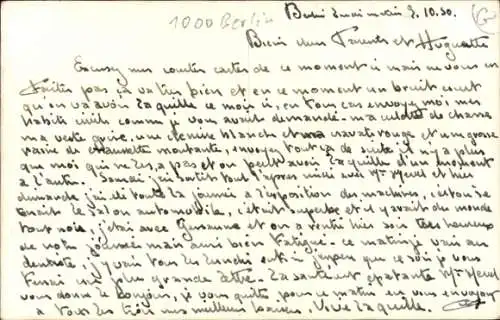 1000 Berlin
Berlin 9.10.30.
Biens chers Parents et Huguette
Excusez mes courtes cartes de ce moment ci mais ne vous en
faites pas ça va très bien et en ce moment un bruit court
qu'on va avoir la quille ce mois ci, en tous cas envoyez moi mes
habits civils comme je vous avait demandé ma culotte de chasse
ma veste une chemise blanche et ma cravate rouge et une grosse
paire de chaussette montante, envoyez tout ça de suite il n'y a plus
que moi qui ne les a pas et on peut avoir la quille d'un moment
à l'autre. Samedi j'ai sortit tout l'après midi avec Mme et hier
dimanche j'ai été toute la journée a l'exposition des machines, c'est ou se
tenait le Salon automobile, c'était superbe et il y avait du monde
tout noir, j'étais avec et on a rentré hier soir très heureux
de notre journée mais aussi bien fatigué. ce matin je vais au
dentiste, j'y vais tous les lundi et j'espère que ce soir je vous
ferai une plus grande lettre. La santé est épatante Mme
vous donne le bonjour, je vous quitte pour ce matin en vous envoyant
a tous les trois mes meilleurs baisers, Vive la quille.